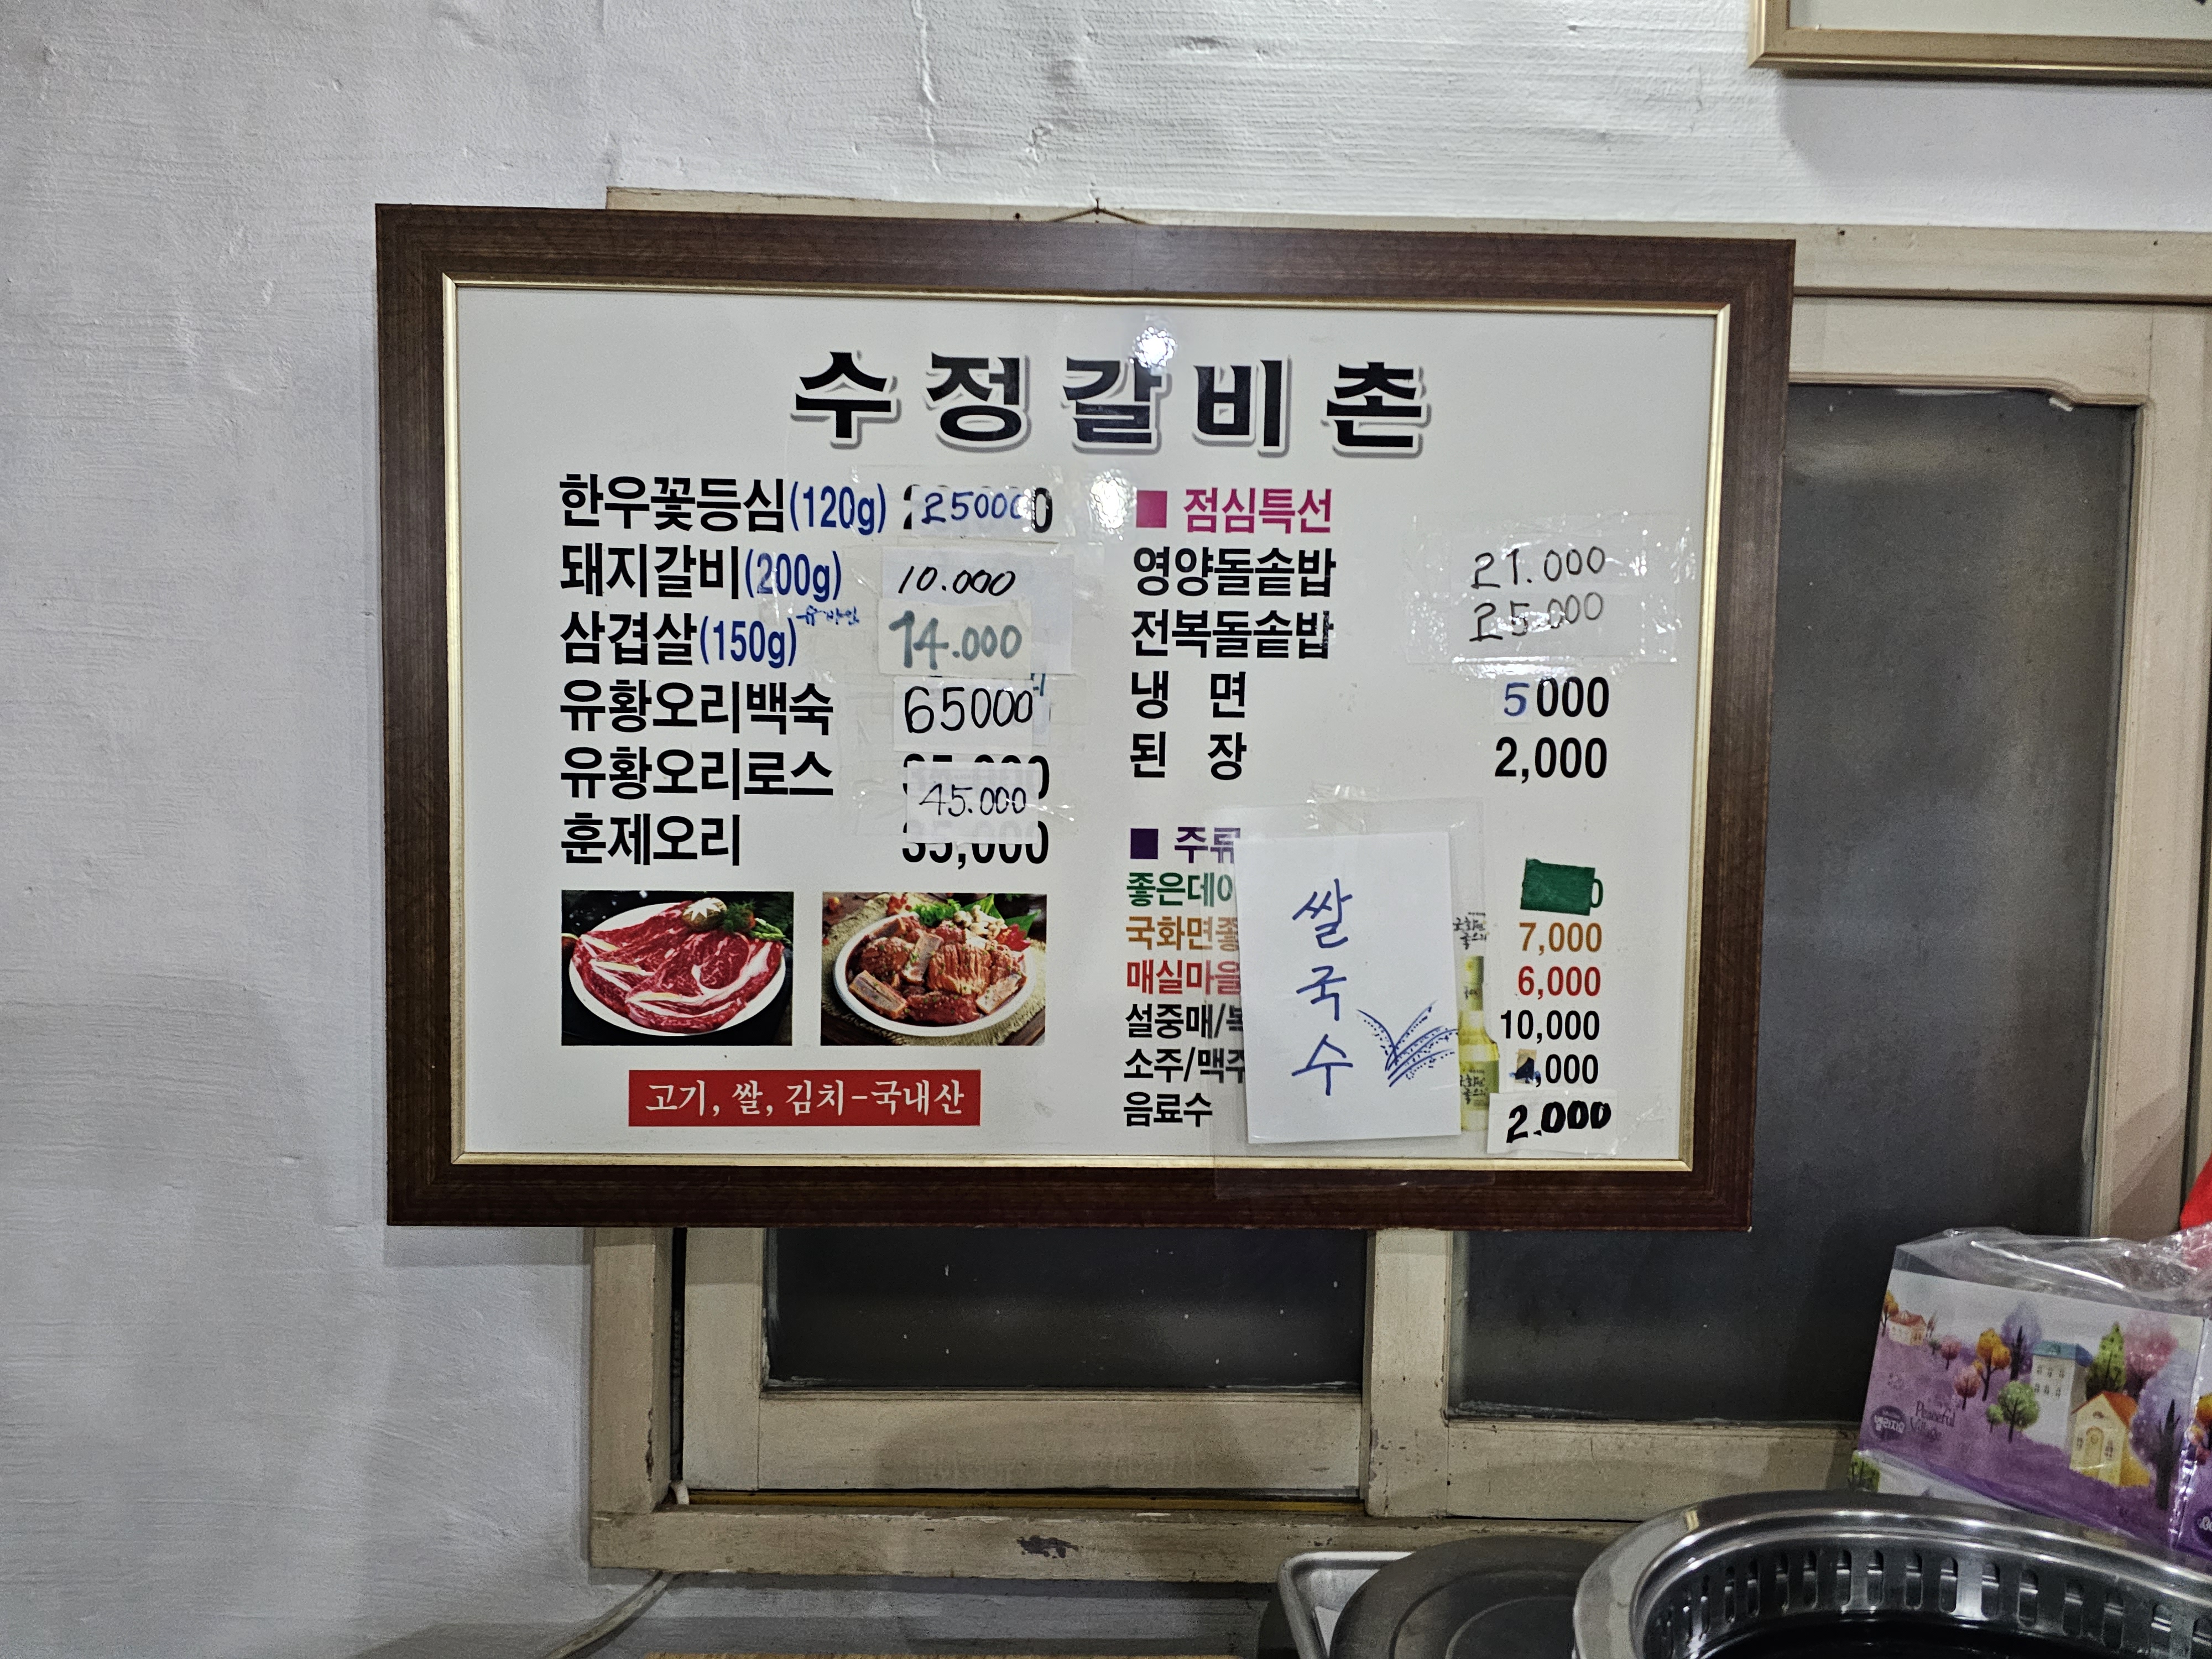 수정갈비촌
한우꽃등심(120g) 25000
돼지갈비(200g) 10.000
삼겹살(150g) 14.000
유황오리백숙 65000
유황오리로스 45.000
훈제오리 35,000
고기, 쌀, 김치-국내산
■ 점심특선
영양돌솥밥 21.000
전복돌솥밥 25.000
냉 면 5000
된 장 2,000
■ 주류
좋은데이
국화면좋 7,000
매실마을 6,000
설중매/복 10,000
소주/맥주 4,000
음료수 2.000
쌀
국
수
Peaceful
Village